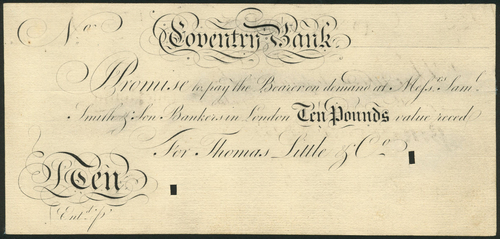 No
Coventry Bank
Promise to pay the Bearer on demand at Mess.rs Sam.l
Smith & Son Bankers in London Ten Pounds value reced
For Thomas Little & Co
£Ten
Ent.d p.